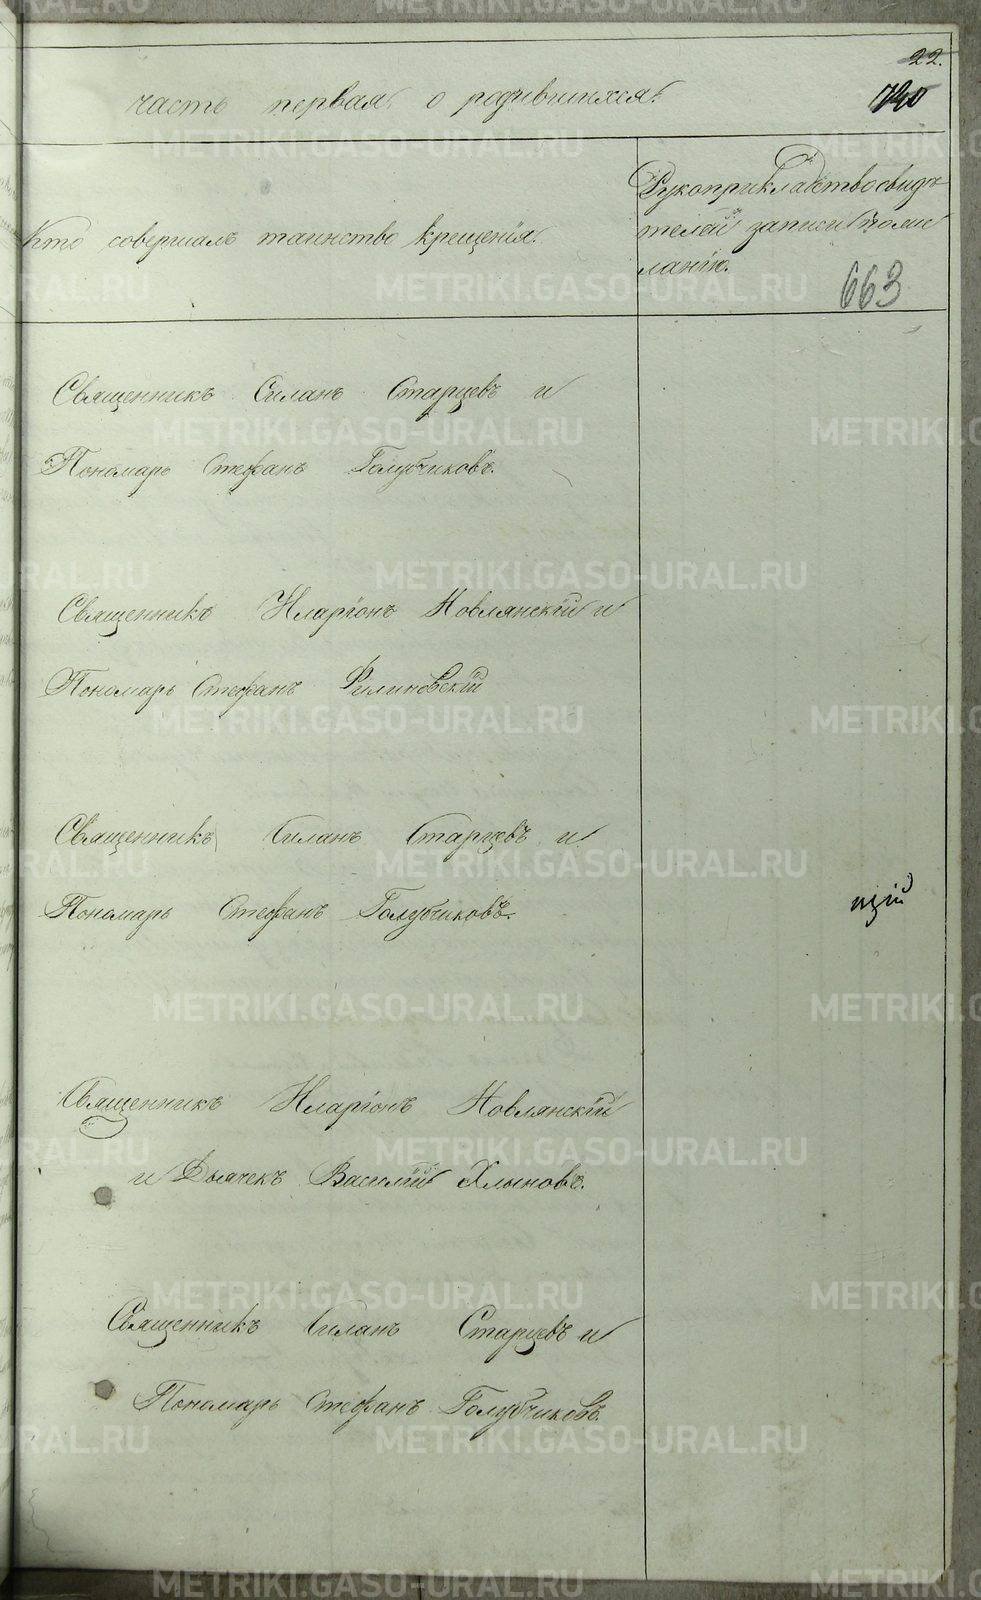 22.
часть первая о родившихся.
Кто совершалъ таинство крещенія.
Рукоприкладство свидѣ-
телей записи по же
ланію.
663
Священникъ Силанъ Старцевъ и
Пономарь Стефанъ Голубчиковъ.
Священникъ Иларіонъ Новлянскій и
Пономарь Стефанъ Филиновскій
Священникъ Силанъ Старцевъ и
Пономарь Стефанъ Голубчиковъ.
щій
Священникъ Иларіонъ Новлянскій
и Дьячекъ Василій Хлыновъ.
Священникъ Силанъ Старцевъ и
Пономарь Стефанъ Голубчиковъ.
METRIKI.GASO-URAL.RU